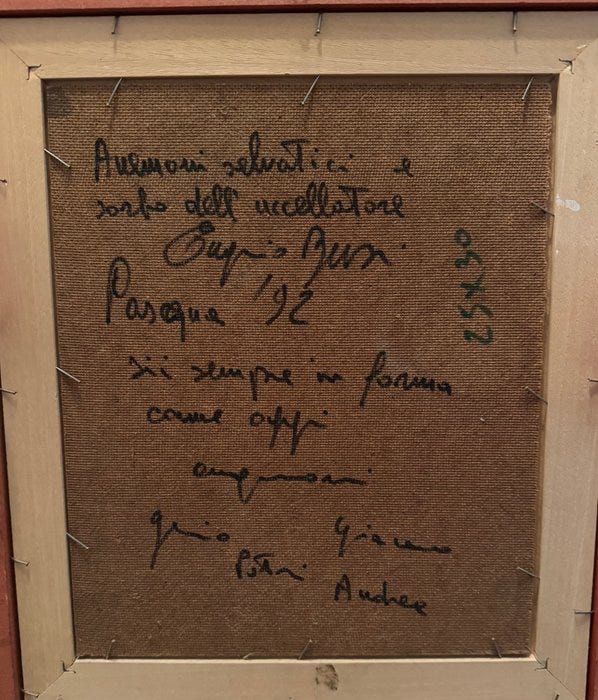 Anemoni selvatici e
sorbo dell'uccellatore
Eugenio Busi
Pasqua '92
25x30
sii sempre in forma
come oggi
auguroni
Giacomo
Andrea